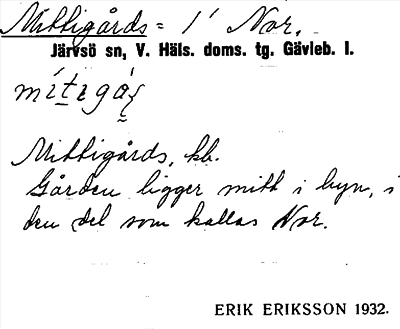 Mittigårds = 1' Nor.
Järvsö sn, V. Häls. doms. tg. Gävleb. l.
Mittigårds, kb.
Gården ligger mitt i byn, i
den del som kallas Nor.
ERIK ERIKSSON 1932.